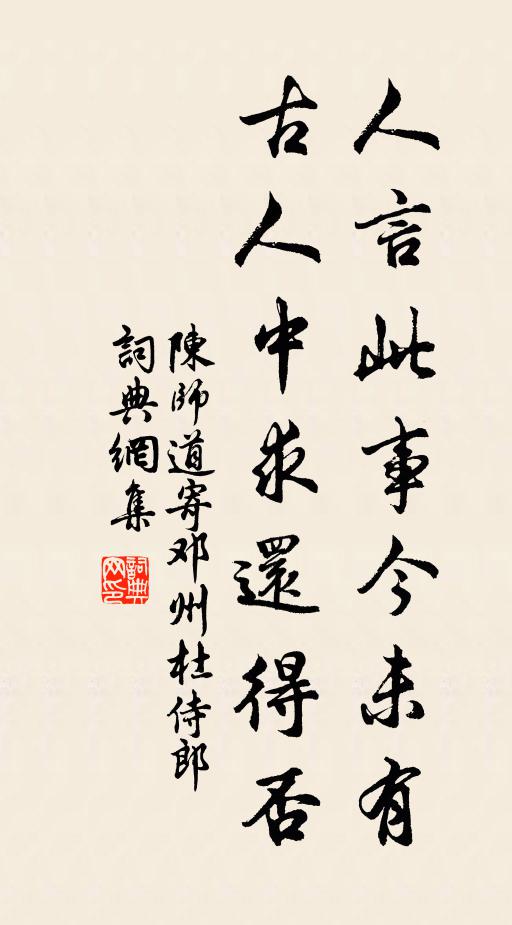 人言此事今未有
古人中求還得否
陳師道寄邓州杜侍郎
詞典網集
詞典网印